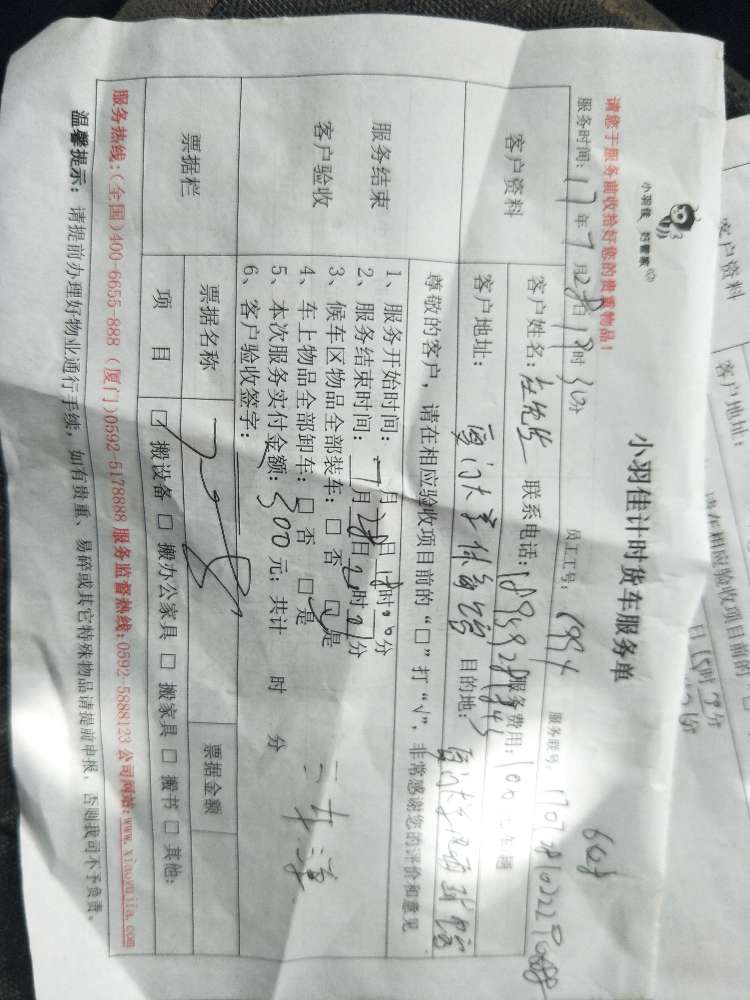 小羽佳 好管家
小羽佳计时货车服务单
请您于服务前收拾好您的贵重物品！
服务时间：17年7月28日18时30分 员工工号：1994 服务联号：
客户资料
客户姓名： 联系电话： 服务费用：100
客户地址：厦门大学体育馆 目的地：厦门大学
服务结束
客户验收
尊敬的客户，请在相应验收项目前的“□”打“√”，非常感谢您的评价和意见
1、服务开始时间：7月28日18时00分
2、服务结束时间：7月28日21时分
3、候车区物品全部装车：□否 □是
4、车上物品全部卸车：□否 □是
5、本次服务实付金额：300元；共计 时 分
6、客户验收签字：
票据栏
票据名称 票据金额
项 目 □搬设备 □搬办公家具 □搬家具 □搬书 □其他：
服务热线：(全国)400-6655-888 (厦门)0592-5178888 服务监督热线：0592-5888123 公司网站：www.xiaoyujia.com
温馨提示：请提前办理好物业通行手续，如有贵重、易碎或其它特殊物品请提前申报，否则我司不予负责。
客户资料
客户地址：
请在相应验收项目前的